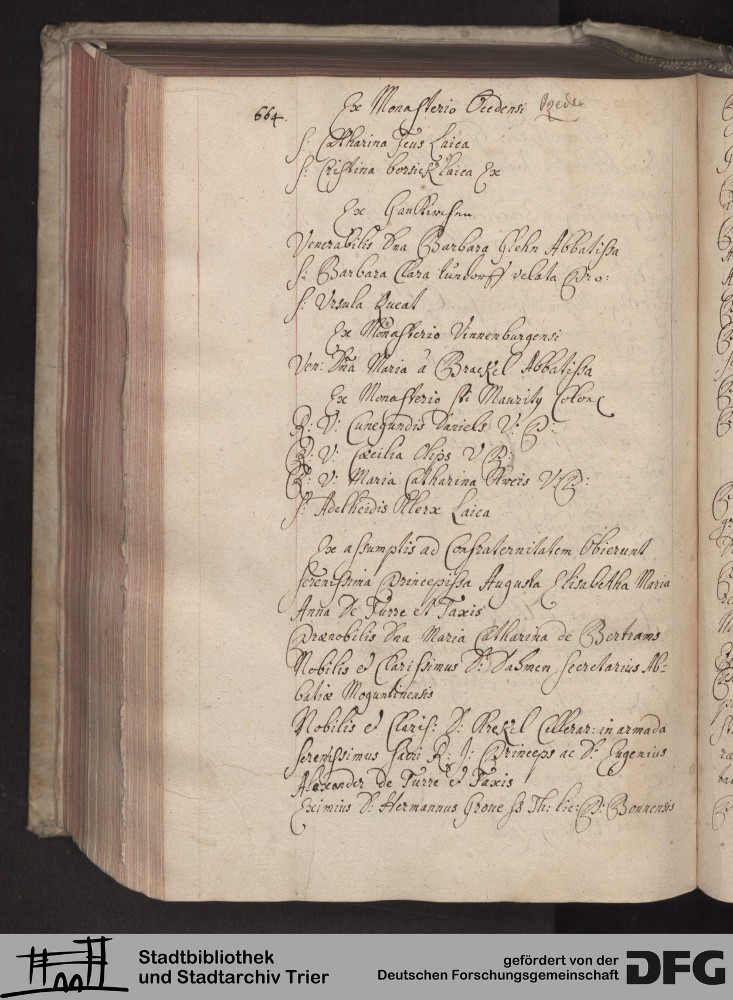 664.
Ex Monasterio Oedensi
S: Catharina Jeus Laica
S: Cristina Corsick laica Ex
Ex
Venerabilis Dna Barbara Glehn Abbatissa
S: Barbara Clara Lundorff velata Pro:
S: Ursula Queat
Ex Monasterio Vinnenburgensi
Ven: Dna Maria a Brackel Abbatissa
Ex Monasterio Sti Maurity Colon
R: V: Cunegundis Daniels V: P:
R: V: Cæcilia Clips V P:
R: V: Maria Catharina V: P:
S: Adelheidis Klerx Laica
Ex assumptis ad Confraternitatem Obierunt
Serenissima Principissa Augusta Elisabetha Maria
Anna De Turre et Taxis
Prænobilis Dna Maria Catharina de Bertrams
Nobilis et Clarissimus D: Dahmen secretarius Ab=
batiæ Moguntinensis
Nobilis et Clariss: D: Krekel Cellerar: in armada
Serenissimus Sacri R: I: Princeps ac D: Eugenius
Alexander de Turre et Taxis
Eximius D: Hermannus Grone SS Th: lic: P: Bonnensis
Stadtbibliothek
und Stadtarchiv Trier
gefördert von der
Deutschen Forschungsgemeinschaft
DFG